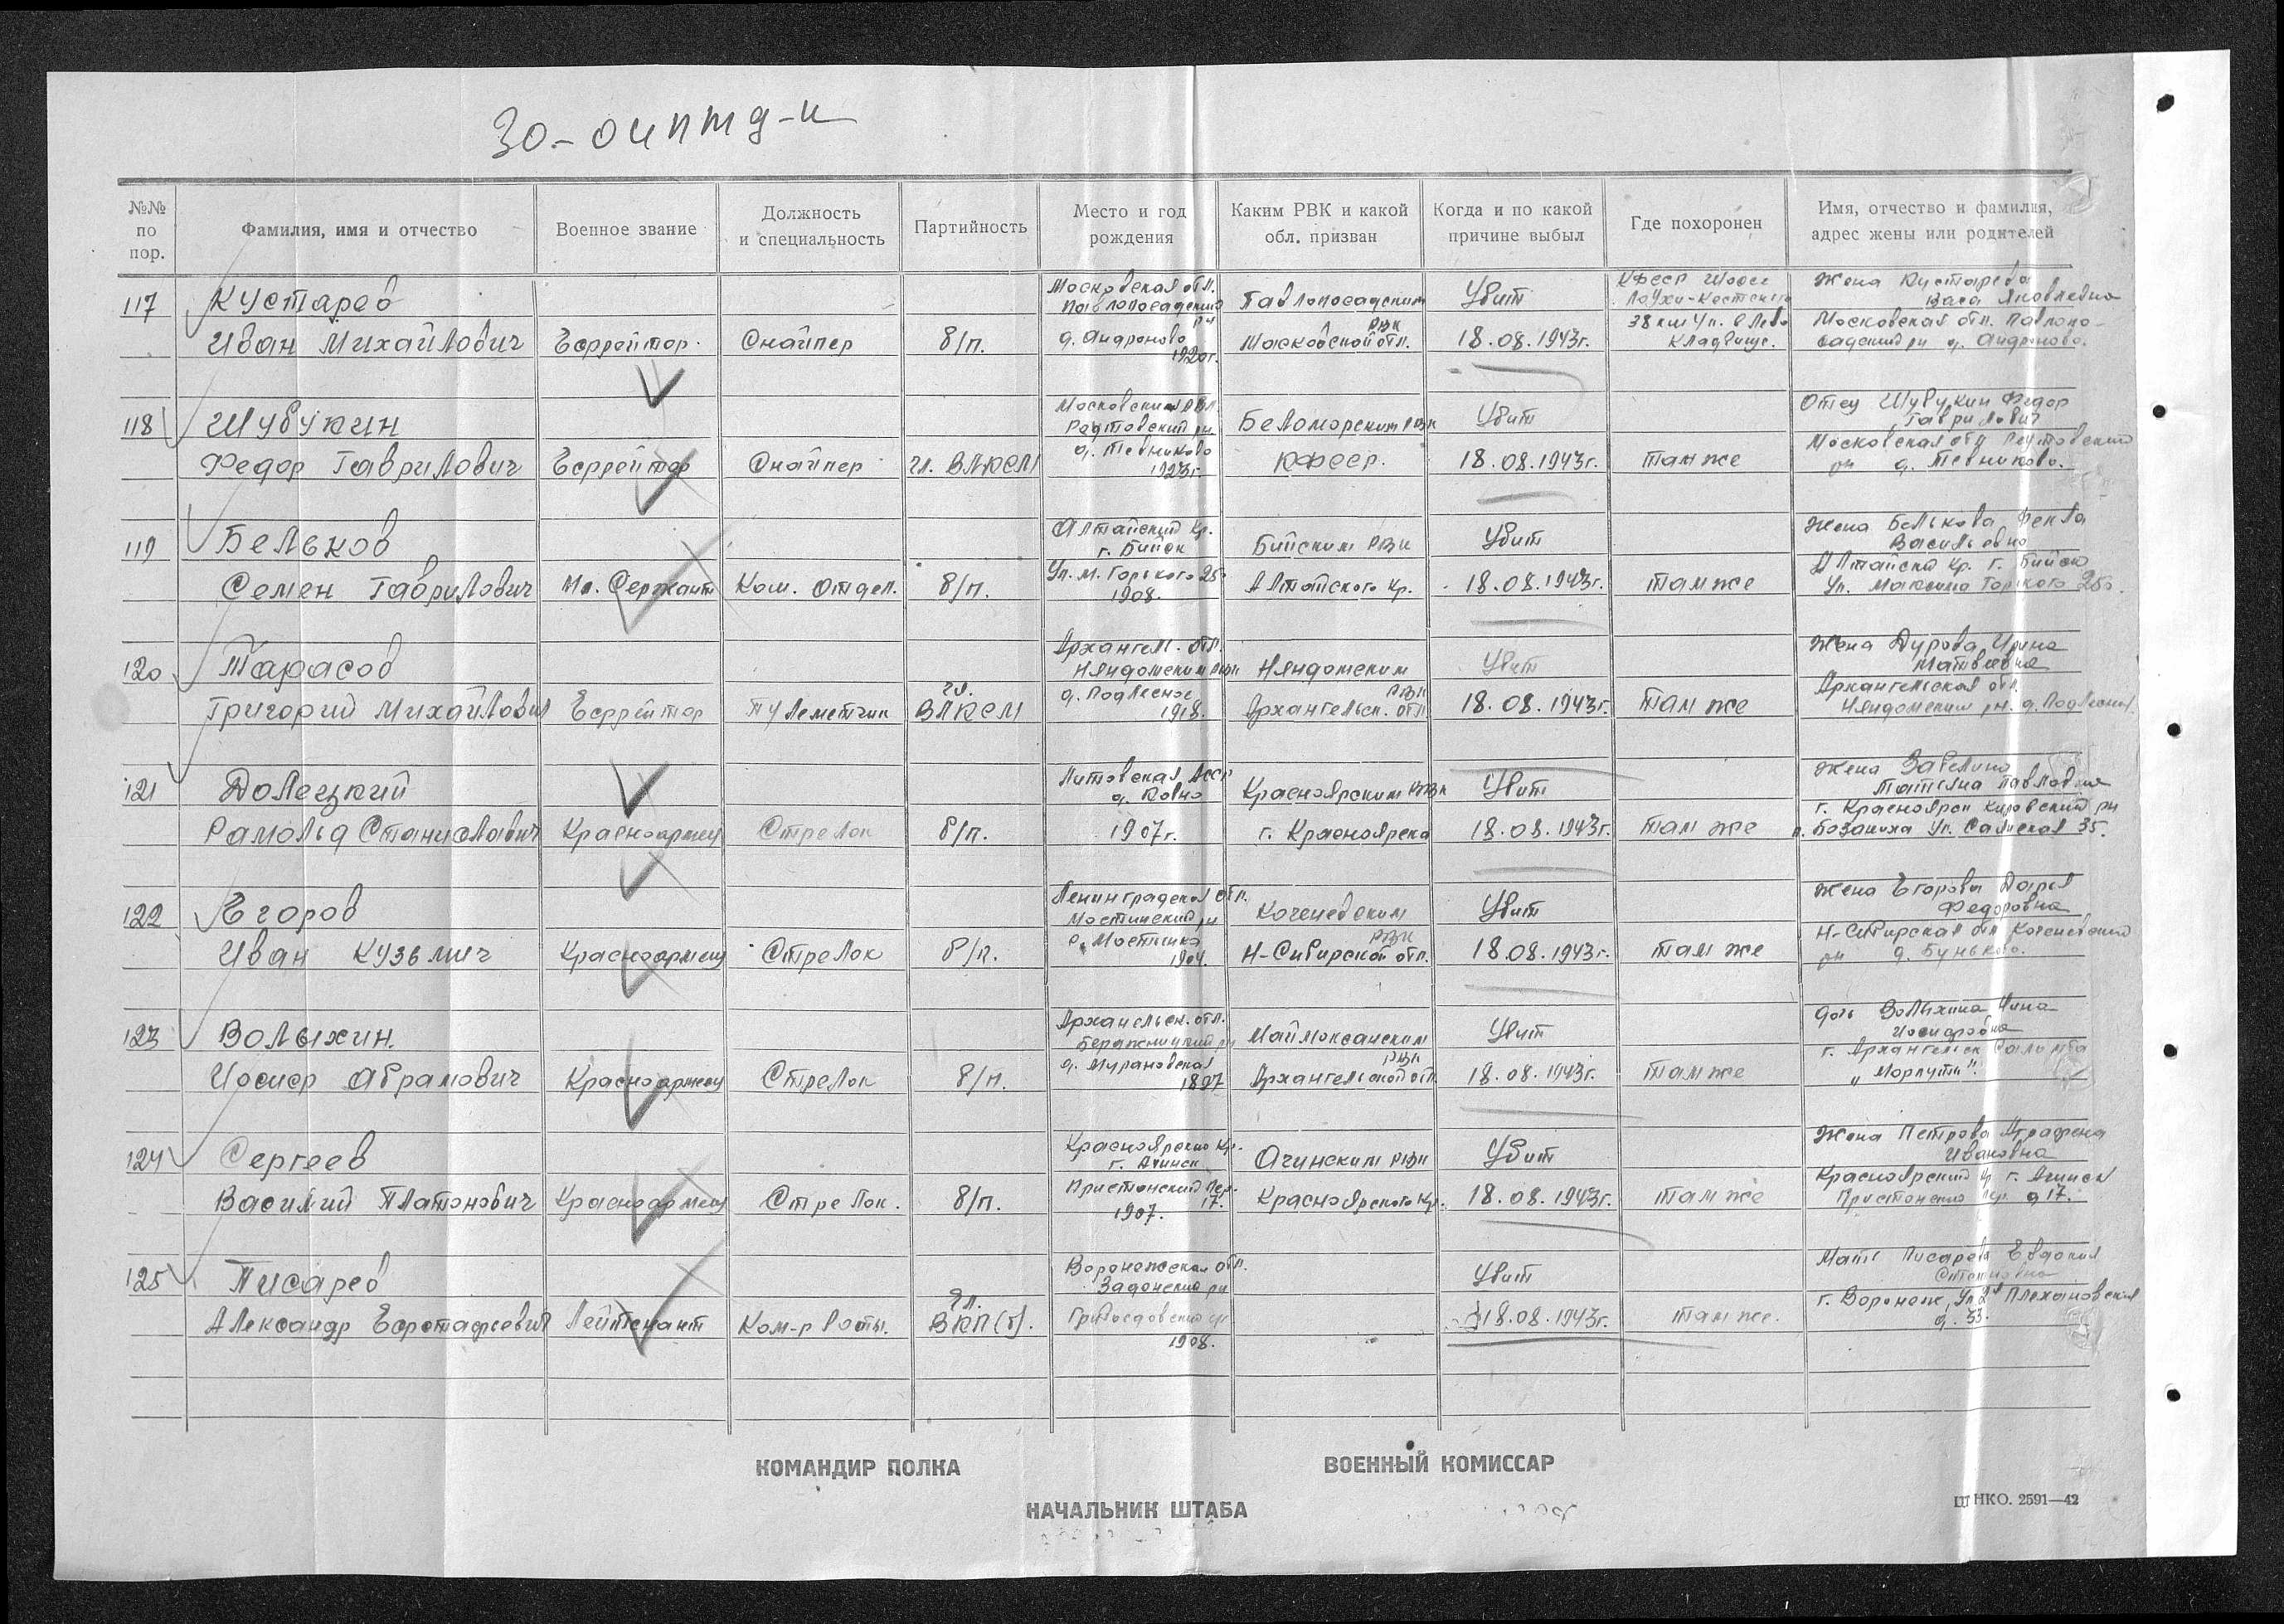 30-оиптд-и
№№ по пор.
Фамилия, имя и отчество
Военное звание
Должность и специальность
Партийность
Место и год рождения
Каким РВК и какой обл. призван
Когда и по какой причине выбыл
Где похоронен
Имя, отчество и фамилия, адрес жены или родителей
117
Кустарев
Иван Михайлович
Ефрейтор
Снайпер
б/п.
Московская обл.
Павлопосадский
рн
д. Андроново
1920г.
Павлопосадским
РВК
Московской обл.
Убит
18.08.1943г.
КФССР Шоссе
Лоухи-Кестеньга
38 км
Кладбище.
Жена Кустарева
Яковлевна
Московская обл. Павлопо-
садский рн д. Андроново.
118
Шубукин
Федор Гаврилович
Ефрейтор
Снайпер
чл. ВЛКСМ
рн
1923г.
Беломорским РВК
КФССР.
Убит
18.08.1943г.
там же
Отец Шубукин Федор
Гаврилович
Московская обл
рн д.
119
Бельков
Семен Гаврилович
Мл. Сержант
Ком. отдел.
б/п.
Алтайский кр.
г. Бийск
Ул. М. Горького
1908.
Бийским РВК
Алтайского кр.
Убит
18.08.1943г.
там же
Жена Белькова Фекла
Васильевна
Алтайский кр. г. Бийск
Ул. Максима Горького
120
Тарасов
Григорий Михайлович
Ефрейтор
Пулеметчик
чл.
ВЛКСМ
Архангел. обл.
Няндомским рвн
д. Подлесное
1918.
Няндомским
РВК
Архангельск. обл
Убит
18.08.1943г.
там же
Жена Дурова Ирина
Матвеевна
Архангельская обл.
Няндомским рн. д.
121
Долецкий
Рамольд Станиславович
Красноармеец
Стрелок
б/п.
Литовская АССР
д. Ковно
1907г.
Красноярским РВК
г. Красноярска
Убит
18.08.1943г.
там же
Жена Забелина
Татьяна Павловна
г. Красноярск Кировский рн
ул. 35.
122
Егоров
Иван Кузьмич
Красноармеец
Стрелок
б/п.
Ленинградская обл.
рн
1904.
Коченевским
РВК
Н-Сибирской обл.
Убит
18.08.1943г.
там же
Жена Егорова Дарья
Федоровна
Н-Сибирская обл Коченевский
рн д. Буньково.
123
Волыхин.
Иосиф Абрамович
Красноармеец
Стрелок
б/п.
Архангельск. обл.
рн
д. Мурановская
1897
Маймоксанским
РВК
Архангельской обл.
Убит
18.08.1943г.
там же
дочь Волыхина Нина
Иосифовна
г. Архангельск Саломба
124
Сергеев
Василий Платонович
Красноармеец
Стрелок.
б/п.
Красноярский кр.
г. Ачинск
Пристанский пер.
17.
1907.
Ачинским РВК
Красноярского кр.
Убит
18.08.1943г.
там же
Жена Петрова Аграфена
Ивановна
Красноярский кр г. Ачинск
Пристанский пер. д 17.
125
Писарев
Александр Евстафьевич
Лейтенант
Ком-р Роты.
чл.
ВКП(б).
Воронежская обл.
Задонский рн
1908.
Убит
18.08.1943г.
там же.
Мать Писарева Евдокия
Степановна
г. Воронеж, Ул 2я Плехановская
д. 53.
КОМАНДИР ПОЛКА
ВОЕННЫЙ КОМИССАР
НАЧАЛЬНИК ШТАБА
НКО. 2591—42